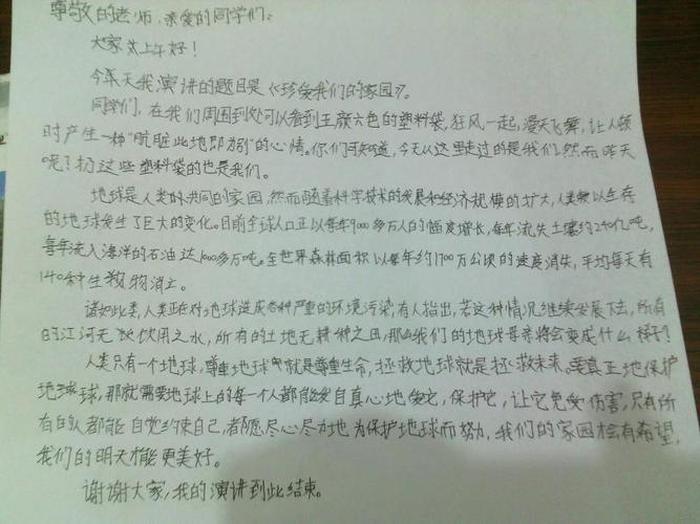 尊敬的老师、亲爱的同学们:
大家上午好!
今天我演讲的题目是《珍爱我们的家园》。
同学们,在我们周围到处可以看到五颜六色的塑料袋,狂风一起,漫天飞舞,让人顿
时产生一种“肮脏此地即为别”的心情。你们可知道,今天从这里走过的是我们,然而昨天
呢?扔这些塑料袋的也是我们。
地球是人类的共同的家园,然而随着科学技术的发展和经济规模的扩大,人类赖以生存
的地球发生了巨大的变化。目前全球人口正以每年9000多万人的幅度增长,每年流失土壤约240亿吨,
每年流入海洋的石油达1000多万吨。全世界森林面积以每年约1700万公顷的速度消失,平均每天有
140种生物消亡。
诸如此类,人类正在对地球造成各种严重的环境污染,有人指出,若这种情况继续发展下去,所有
的江河无饮用之水,所有的土地无耕种之田,那么我们的地球母亲将会变成什么样子?
人类只有一个地球,尊重地球就是尊重生命,拯救地球就是拯救未来。要真正地保护
地球,那就需要地球上的每一个人都能发自真心地爱它,保护它,让它免受伤害,只有所
有的人都能自觉约束自己,都愿尽心尽力地为保护地球而努力,我们的家园才会有希望,
我们的明天才能更美好。
谢谢大家,我的演讲到此结束。